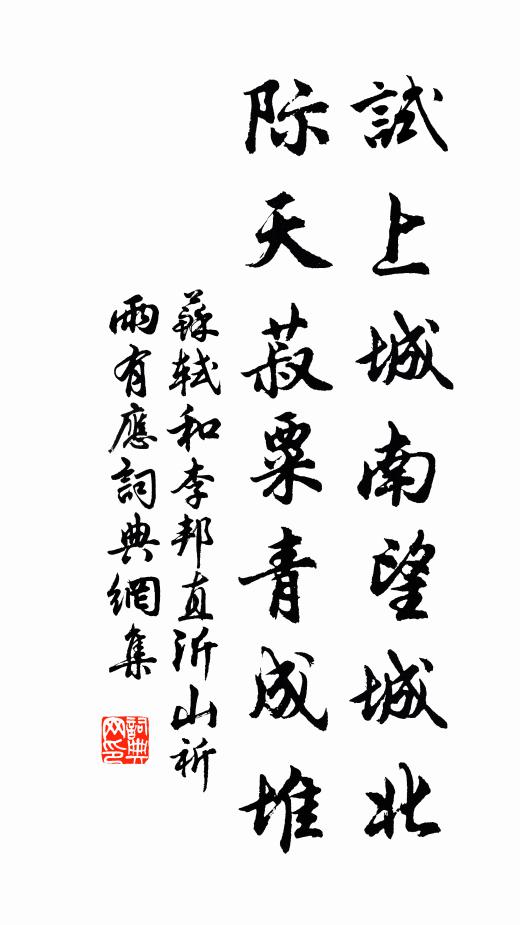 試上城南望城北
际天菽粟青成堆
蘇軾和李邦直沂山祈
雨有應詞典網集
詞典
网印